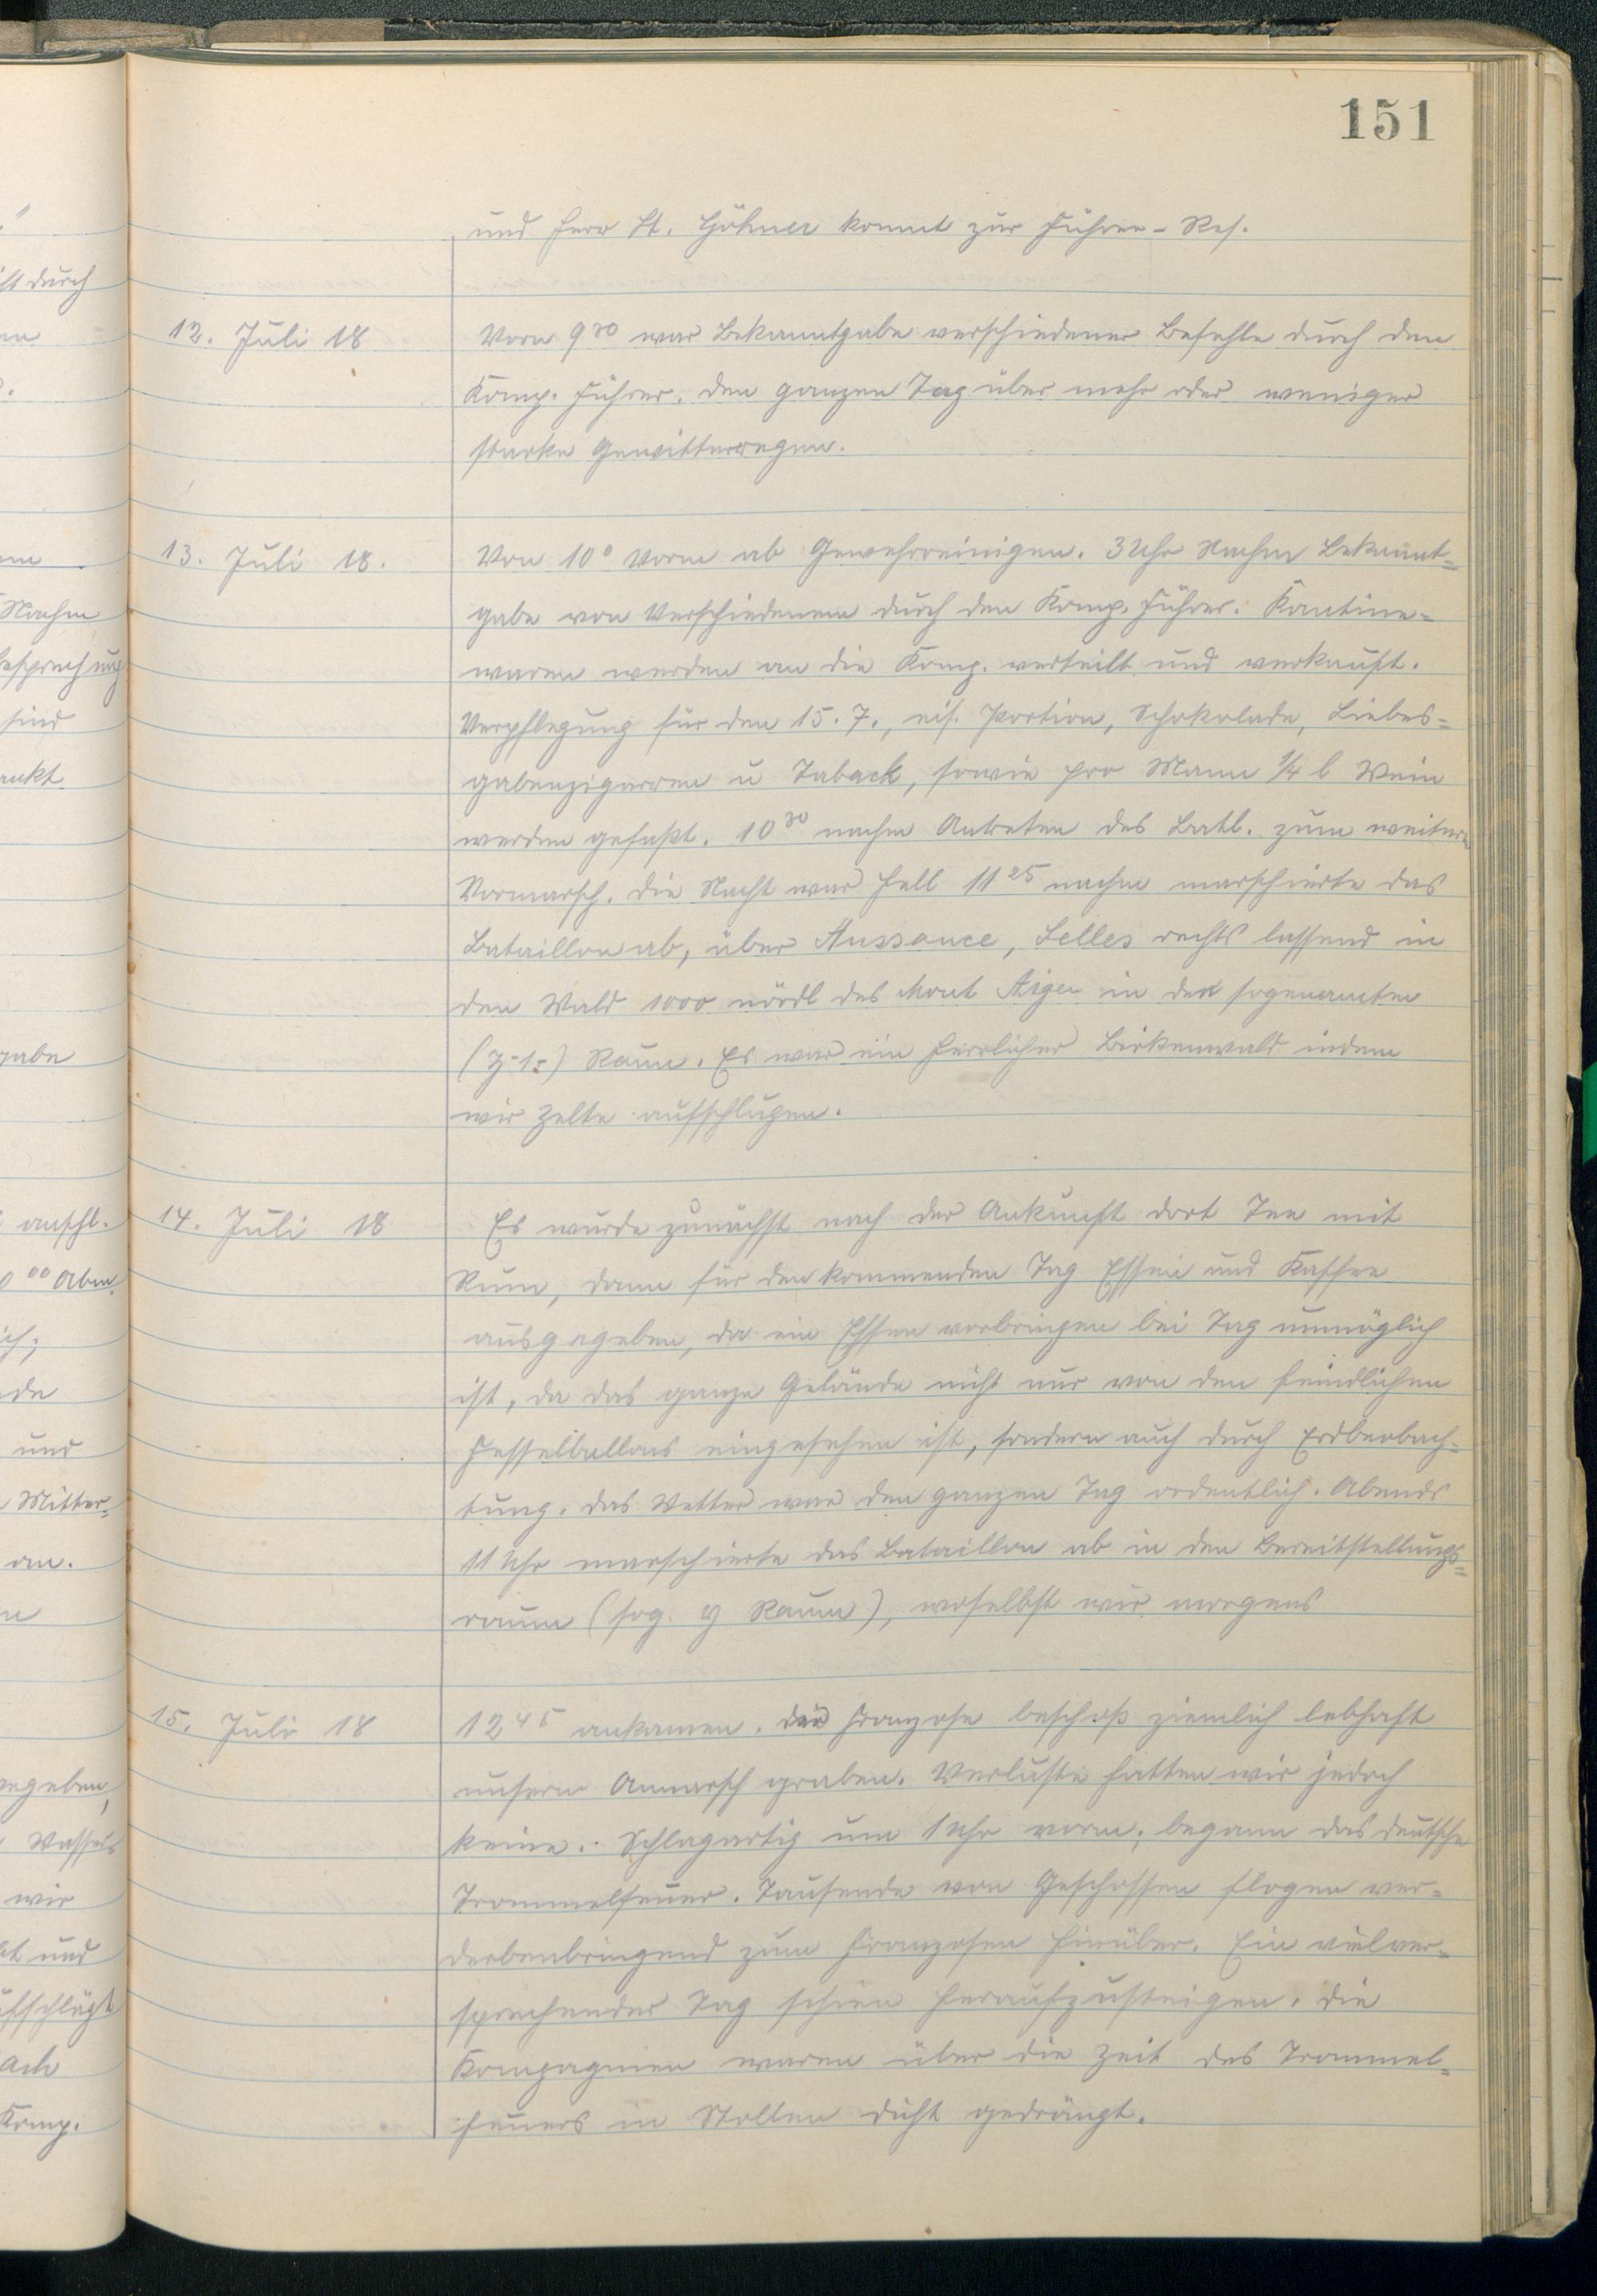 151
und Herr Lt. Höhner kommt zur Führer-Res.
12. Juli 18 Vorm 9³⁰ war Bekanntgabe verschiedener Befehle durch den
Komp. Führer. Den ganzen Tag über mehr oder weniger
starke Gewitterregen.
13. Juli 18. Von 10⁰ vorm ab Gewehrreinigen. 3 Uhr Nachm Bekannt=
gabe von Verschiedenem durch den Komp. Führer. Kantine=
waren werden an die Komp. verteilt und verkauft.
Verpflegung für den 15.7., eis. Portion, Schokolade, Liebes=
gabenzigarren u Taback, sowie pro Mann 1/4 l Wein
werden gefaßt. 10³⁰ nachm Antreten des Batl. zum weitern
Vormarsch. Die Nacht war hell 11²⁵ nachm marschierte das
Bataillon ab, über Aussonce, Selles rechts lassend in
den Wald 1000 nördl des Mont Aigu in den sogenannten
Raum. Es war ein herrlicher Birkenwald indem
wir Zelte aufschlugen.
14. Juli 18 Es wurde zunächst nach der Ankunft dort Tee mit
Rum, dann für den kommenden Tag Essen und Kaffee
ausgegeben, da ein Essen vorbringen bei Tag unmöglich
ist, da das ganze Gelände nicht nur von den feindlichen
Fesselballons eingesehen ist, sondern auch durch Erdbeobach=
tung. Das Wetter war den ganzen Tag ordentlich. Abends
11 Uhr marschierte das Bataillon ab in den Bereitstellungs=
raum (sog. y Raum), woselbst wir morgens
15. Juli 18 12⁴⁵ ankamen. Der Franzose beschoß ziemlich lebhaft
unsern Anmarsch graben. Verluste hatten wir jedoch
keine. Schlagartig um 1 Uhr vorm. begann das deutsche
Trommelfeuer. Tausende von Geschossen flogen ver=
derbenbringend zum Franzosen hinüber. Ein vielver=
sprechender Tag schien heraufzusteigen. Die
Kompagnien waren über die Zeit des Trommel=
feuers in Stollen dicht gedrängt.